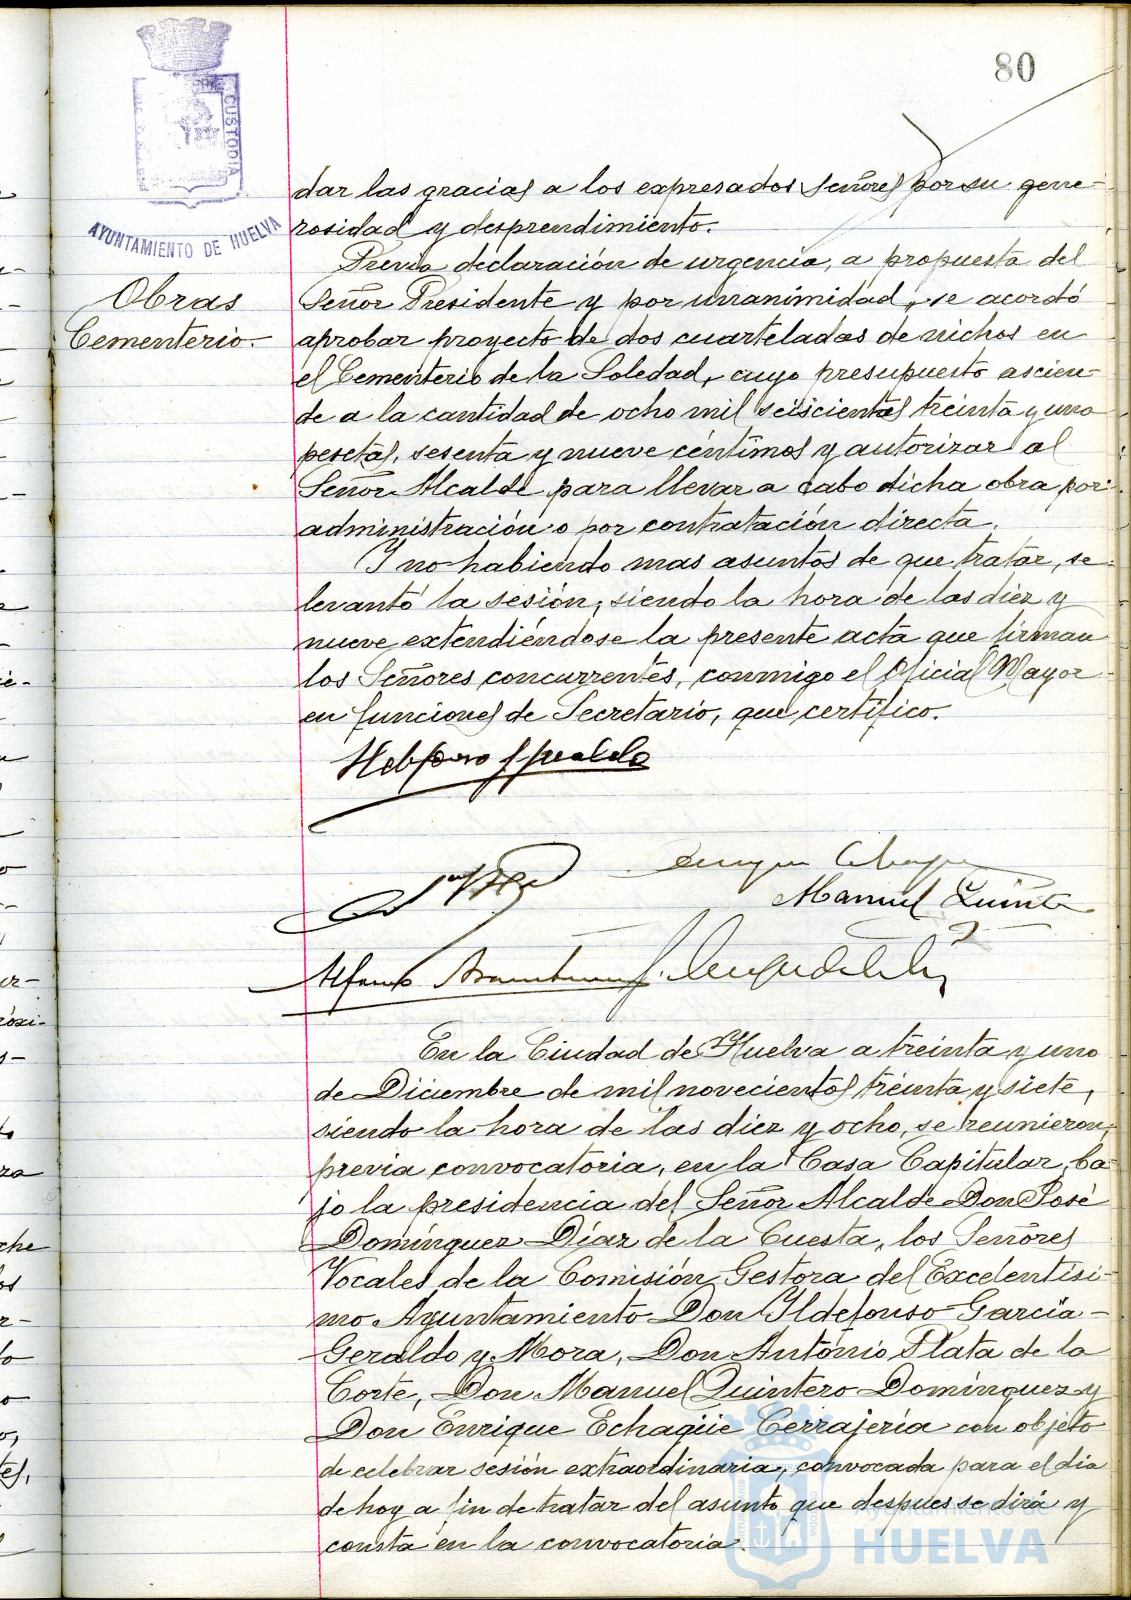 80
CUSTODIA
AYUNTAMIENTO DE HUELVA
dar las gracias a los expresados Señores por su gene-
rosidad y desprendimiento.
Obras
Cementerio.
Previa declaración de urgencia, a propuesta del
Señor Presidente y por unanimidad, se acordó
aprobar proyecto de dos cuarteladas de nichos en
el Cementerio de la Soledad, cuyo presupuesto ascien-
de a la cantidad de ocho mil seiscientas treinta y una
pesetas, sesenta y nueve céntimos y autorizar al
Señor Alcalde para llevar a cabo dicha obra por
administración o por contratación directa.
Y no habiendo mas asuntos de que tratar, se
levantó la sesión, siendo la hora de las diez y
nueve extendiéndose la presente acta que firman
los Señores concurrentes, conmigo el Oficial Mayor
en funciones de Secretario, que certifico.
Manuel Quintero
Alfonso
En la Ciudad de Huelva a treinta y uno
de Diciembre de mil novecientos treinta y siete,
siendo la hora de las diez y ocho, se reunieron,
previa convocatoria, en la Casa Capitular, ba-
jo la presidencia del Señor Alcalde Don José
Domínguez Díaz de la Cuesta, los Señores
Vocales de la Comisión Gestora del Excelentísi-
mo Ayuntamiento Don Ildefonso García-
Geraldo y Mora, Don António Plata de la
Corte, Don Manuel Quintero Domínguez y
Don Enrique Echagüe Cerrajería con objeto
de celebrar sesión extraordinaria, convocada para el dia
de hoy a fin de tratar del asunto que despues se dirá y
consta en la convocatoria.
Ayuntamiento de
HUELVA